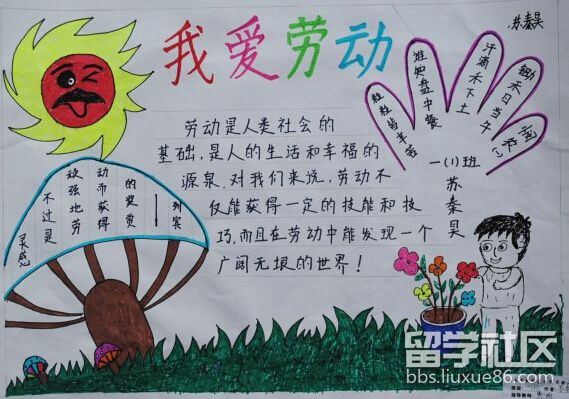 我爱劳动
苏秦昊
锄禾日当午
汗滴禾下土
谁知盘中餐
粒粒皆辛苦
一(1)班
苏秦昊
劳动是人类社会的
基础,是人的生活和幸福的
源泉.对我们来说,劳动不
仅能获得一定的技能和技
巧,而且在劳动中能发现一个
广阔无垠的世界!
灵感
不过是
顽强地劳
动而获得
的奖赏
——列宾
留学社区
bbs.liuxue86.com